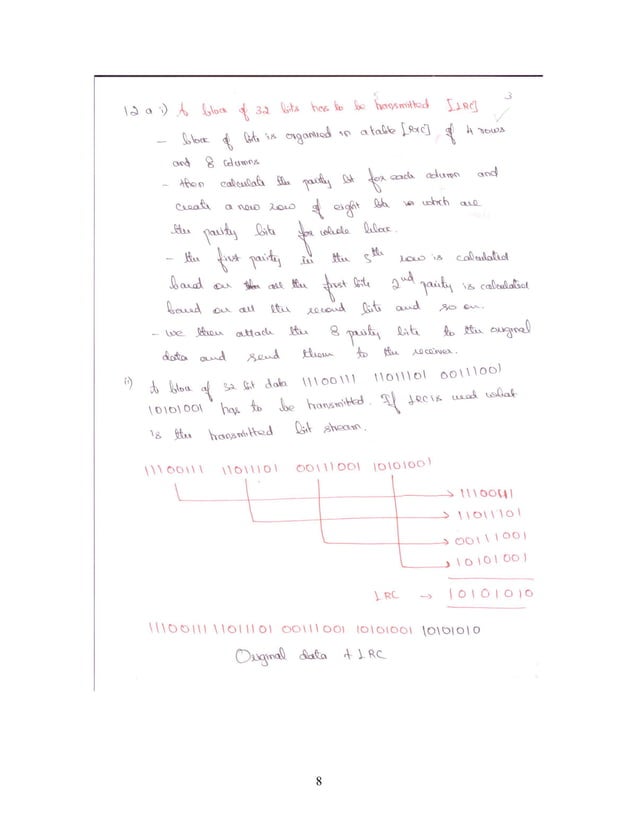 3
12 a i) A bloc of 32 bits has to be transmitted [LRC]
- bloc of bits is organised in a table [RxC] of 4 rows
and 8 columns
- then calculate the parity bit for each column and
create a new row of eight bits which are
the parity bits for whole bloc.
- the first parity in the 5th row is calculated
based on all the first bits 2nd parity is calculated
based on all the second bits and so on.
- we then attach the 8 parity bits to the original
data and send them to the receiver.
ii) A bloc of 32 bit data 11100111 11011101 00111001
10101001 has to be transmitted. If LRC is used what
is the transmitted bit stream.
11100111 11011101 00111001 10101001
11100111
11011101
00111001
10101001
LRC → 10101010
11100111 11011101 00111001 10101001 10101010
Original data + LRC
8